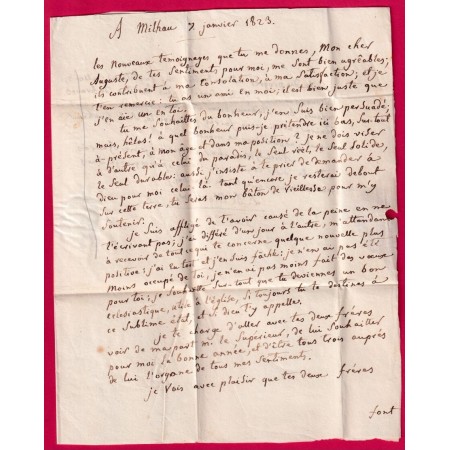 A Milhau 7 janvier 1823.
les Nouveaux temoignages que tu me donnes, Mon cher
Auguste, de tes Sentimens pour moi, me Sont bien agréables;
ils contribuent à ma Consolation, à ma Satisfaction; et je
t'en remercie: tu as un ami en moi; il est bien juste que
j'en aie un en toi.
tu me Souhaites du bonheur, j'en Suis bien persuadé;
mais, hélas! à quel bonheur puis-je prétendre ici bas, Sur-tout
à-présent, à mon âge et dans ma position? je ne dois viser
à d'autre qu'à celui du paradis, le Seul réel, le Seul Solide,
le Seul durable: aussi j'insiste à te prier de demander à
dieu pour moi celui-là. tant qu'encore je resterai debout
Sur cette terre, tu Seras mon bâton de Vieillesse pour m'y
Soutenir.
je Suis affligé de t'avoir causé de la peine en ne
t'écrivant pas; j'ai différé d'un jour à l'autre, m'attendant
à recevoir de tout ce qui te concerne quelque nouvelle plus
positive: j'ai eu tort et j'en Suis fâché: je n'en ai pas été
Moins occupé de toi, je n'en ai pas moins fait des voeux
pour toi; je Souhaite Sur-tout que tu deviennes un bon
ecclesiastique, utile à l'église, Si toujours tu te destines à
ce Sublime état, et Si dieu t'y appelle.
je te charge d'aller avec tes deux frères
voir de ma part Mr. le Supérieur, de lui Souhaiter
pour moi la bonne année, et d'être tous trois auprès
de lui l'organe de tous mes Sentimens.
je Vois avec plaisir que tes deux frères
font